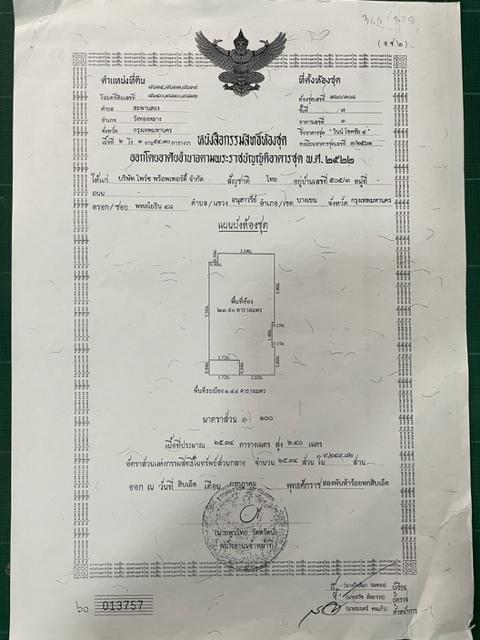 360/308
(อ.ช.๒)
ตำแหน่งที่ดิน
ที่ตั้งห้องชุด
โฉนดที่ดินเลขที่
ห้องชุดเลขที่ ๓๖๐/๓๐๘
ตำบล สะพานสอง
ชั้นที่ ๓
อำเภอ วังทองหลาง
อาคารเลขที่ ๓
จังหวัด กรุงเทพมหานคร
ชื่ออาคารชุด " วินน์ โชคชัย ๔ "
เนื้อที่ ๒ ไร่ ๑ งาน ตารางวา
ทะเบียนอาคารชุดเลขที่
หนังสือกรรมสิทธิ์ห้องชุด
ออกโดยอาศัยอำนาจตามพระราชบัญญัติอาคารชุด พ.ศ. ๒๕๒๒
ให้แก่ บริษัท ไพร์ซ พร็อพเพอร์ตี้ จำกัด สัญชาติ ไทย อยู่บ้านเลขที่ ๕๐๕/๓ หมู่ที่ -
ถนน -
ตรอก/ซอย พหลโยธิน ๔๘ ตำบล/แขวง อนุสาวรีย์ อำเภอ/เขต บางเขน จังหวัด กรุงเทพมหานคร
แผนผังห้องชุด
3.24ม.
พื้นที่ห้อง
๒๓.๙๐ ตารางเมตร
0.15ม.
0.15ม.
1.72ม.
1.72ม.
พื้นที่ระเบียง ๑.๔๔ ตารางเมตร
มาตราส่วน ๑ : ๑๐๐
เนื้อที่ประมาณ ๒๕.๓๔ ตารางเมตร สูง ๒.๔๐ เมตร
อัตราส่วนแห่งกรรมสิทธิ์ในทรัพย์ส่วนกลาง จำนวน ๒๕.๓๔ ส่วน ใน ๙,๒๔๙.๘๒ ส่วน
ออก ณ วันที่ สิบเอ็ด เดือน กรกฎาคม พุทธศักราช สองพันห้าร้อยหกสิบเอ็ด
พนักงานเจ้าหน้าที่
ผู้เขียน
ผู้ตรวจ
หัวหน้าการ
๖๐ 013757